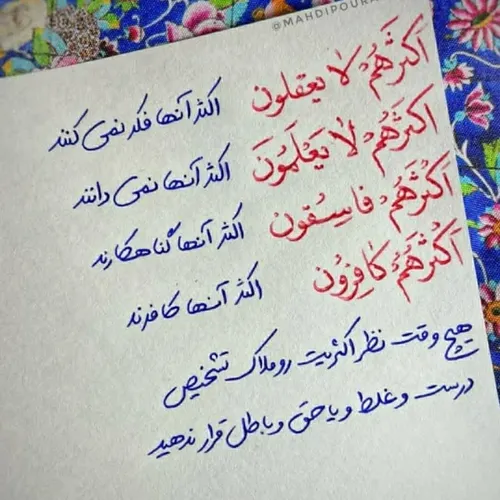 @MAHDIPOURA
اَکثَرُهُمْ لا یعقلون اکثر آنها فکر نمی کنند
اَکثَرُهُمْ لا یَعْلَمُونَ اکثر آنها نمی دانند
اَکْثَرُهُمْ فاسِقون اکثر آنها گناهکارند
اَکْثَرُهُمْ کافِرُون اکثر آنها کافرند
هیچ وقت نظر اکثریت رو ملاک تشخیص
درست و غلط و یا حق و باطل قرار ندهید